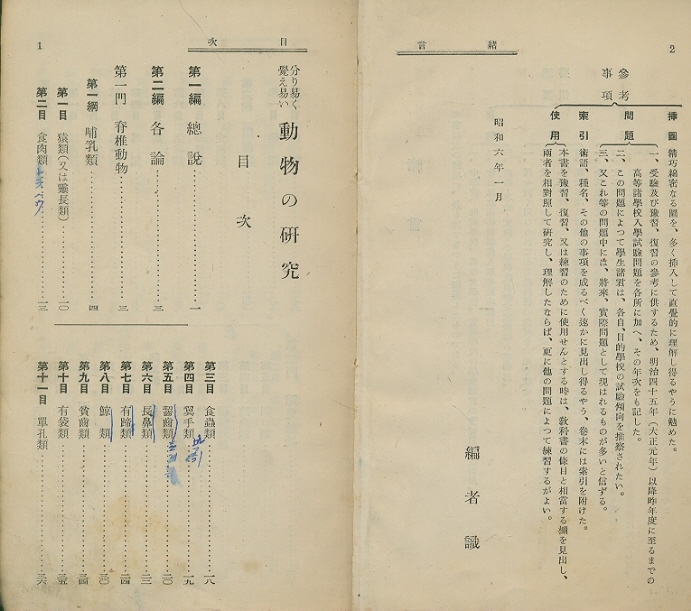 緒言
2
參考事項
挿圖 精巧綿密なる圖を、多く挿入して直覺的に理解し得るやうに勉めた。
問題 一、受驗及び豫習、復習の參考に供するため、明治四十五年（大正元年）以降昨年度に至るまでの
高等諸學校入學試驗問題を各所に加へ、その年次をも記した。
二、この問題によつて學生諸君は、各自、目的學校の試驗傾向を推察されたい。
三、又これ等の問題中には、將來、實際問題として現はれるものが多いと信ずる。
索引 術語、種名、その他の事項を成るべく速かに見出し得るやう、卷末には索引を附けた。
使用 本書を豫習、復習、又は練習のために使用せんとする時は、敎科書の條目と相當する欄を見出し、
兩者を相對照して研究し、理解したならば、更に他の問題によつて練習するがよい。
昭和六年一月
編者識
目次
1
分り易く
覺え易い
動物の研究
目次
第一編 總說………一
第二編 各論………三
第一門 脊椎動物………三
第一綱 哺乳類………四
第一目 猿類（又は靈長類）………一〇
第二目 食肉類………一三
第三目 食蟲類………一八
第四目 翼手類………一九
第五目 齧齒類………二〇
第六目 長鼻類………二三
第七目 有蹄類………二四
第八目 鯨類………三〇
第九目 貧齒類………三四
第十目 有袋類………三五
第十一目 單孔類………三六